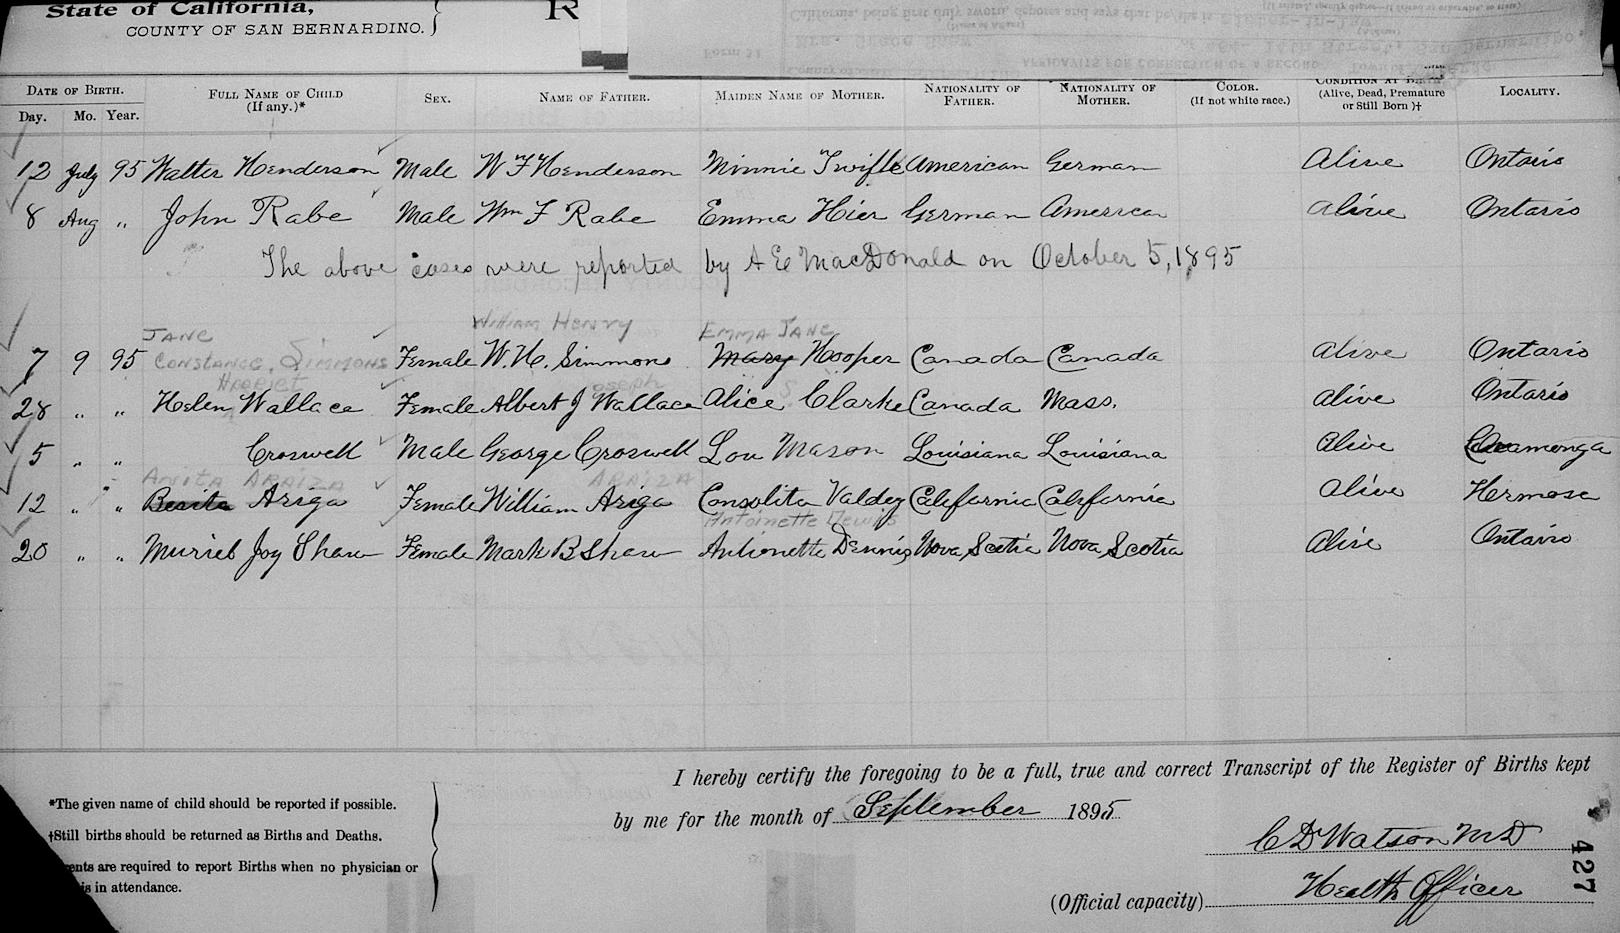 State of California,
COUNTY OF SAN BERNARDINO.
R
DATE OF BIRTH. FULL NAME OF CHILD (If any.)* SEX. NAME OF FATHER. MAIDEN NAME OF MOTHER. NATIONALITY OF FATHER. NATIONALITY OF MOTHER. COLOR. (If not white race.) CONDITION AT BIRTH (Alive, Dead, Premature or Still Born)† LOCALITY.
Day. Mo. Year.
12 July 95 Walter Henderson Male W F Henderson Minnie American German Alive Ontario
8 Aug " John Rabe Male Wm F Rabe Emma Hier German American alive Ontario
The above cases were reported by A E MacDonald on October 5, 1895
JANE William Henry EMMA JANE
7 9 95 CONSTANCE, SIMMONS Female W. H. Simmons Mary Hooper Canada Canada alive Ontario
Harriet oseph
28 " " Helen Wallace Female Albert J Wallace Alice Clarke Canada Mass. alive Ontario
5 " " Croswell Male George Croswell Lou Mason Louisiana Louisiana Alive Cucamonga
ANITA ARAIZA ARAIZA
12 " " Ariga Female William Ariga Consolita Valdez California California alive Hermosa
Antoinette
20 " " Muriel Joy Shaw Female Mark B Shaw Antionette Dennis Nova Scotia Nova Scotia Alive Ontario
I hereby certify the foregoing to be a full, true and correct Transcript of the Register of Births kept
by me for the month of September 1895
*The given name of child should be reported if possible.
†Still births should be returned as Births and Deaths.
are required to report Births when no physician or
is in attendance.
C D Watson MD
(Official capacity) Health Officer
427